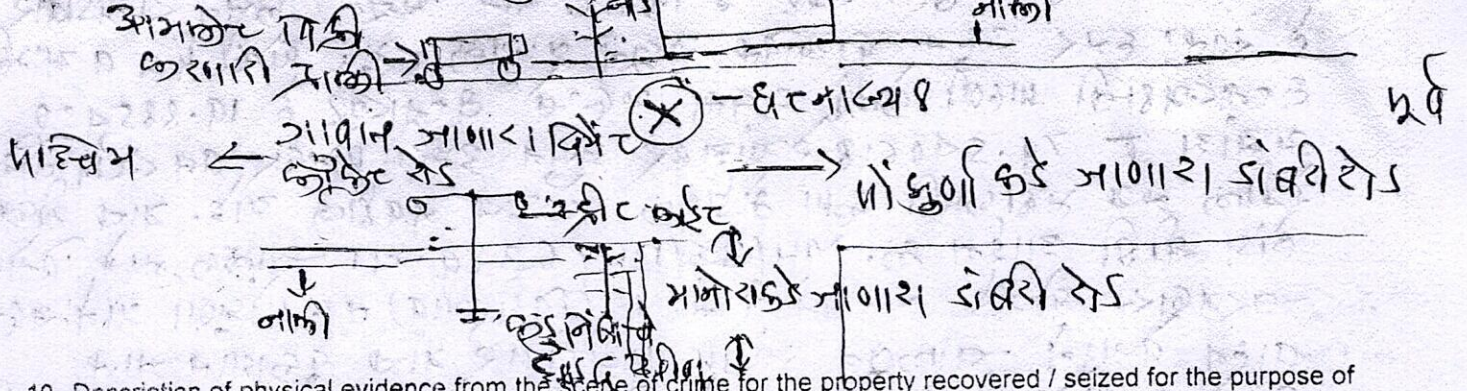 नाली
आमलेट विक्री
करणारी गाडी
घटनास्थळ
पूर्व
पश्चिम
गावात जाणारा सिमेंट
काँक्रेट रोड
पांढुर्णा कडे जाणारा डांबरी रोड
स्ट्रीट लाईट
मानोराकडे जाणारा डांबरी रोड
नाली
कडुनिंबाचे
10. Description of physical evidence from the scene of crime for the property recovered / seized for the purpose of